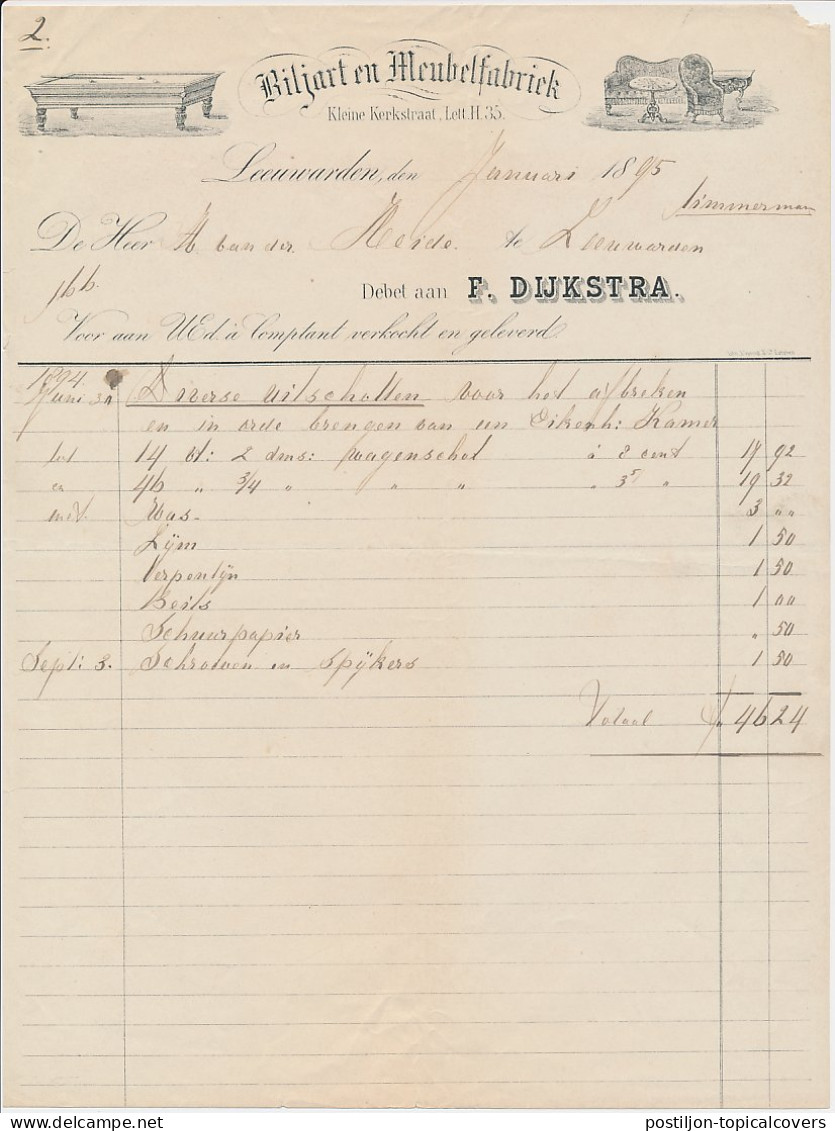 2.
Biljart en Meubelfabriek
Kleine Kerkstraat, Lett. H. 35.
Leeuwarden, den Januari 1895
Timmerman
De Heer A. van der Heide. te Leeuwarden
Debet aan F. DIJKSTRA.
Voor aan UEd. à Comptant verkocht en geleverd.
1894.
Juni Diverse uitschotten voor het afbreken
en in orde brengen van een Eikenh: Kamer
14 2 dms: wagenschot à 8 cent 17 92
46 " 3/4 " " " " 3⁵ " 19 32
Was. 3 " "
Lijm 1 50
Terpentijn 1 50
Beits 1 00
Schuurpapier " 50
Sept: 3. Schroeven en Spijkers 1 50
Totaal 46 24
postiljon-topicalcovers